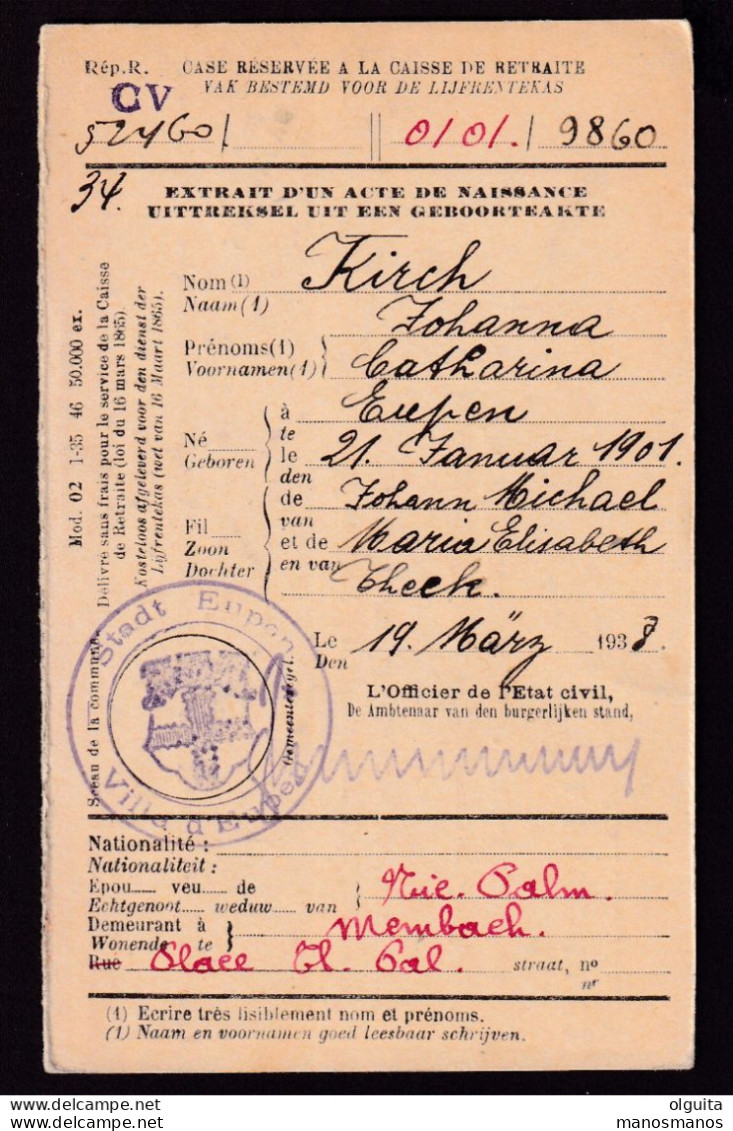 Rép.R. CASE RÉSERVÉE A LA CAISSE DE RETRAITE
VAK BESTEMD VOOR DE LIJFRENTEKAS
CV
52460/ 0101./ 9860
34.
EXTRAIT D'UN ACTE DE NAISSANCE
UITTREKSEL UIT EEN GEBOORTEAKTE
Nom (1) Kirch
Naam (1)
Johanna
Prénoms(1)
Voornamen(1) Catharina
à Eupen
te
Né le 21. Januar 1901.
Geboren den
de Johann Michael
van
Fil et de Maria Elisabeth
Zoon en van
Dochter Theek.
Le 19. März 1938.
Den
L'Officier de l'Etat civil,
De Ambtenaar van den burgerlijken stand,
Mod. 02 1-35 46 50.000 ex.
Délivré sans frais pour le service de la Caisse
de Retraite (loi du 16 mars 1865).
Kosteloos afgeleverd voor den dienst der
Lijfrentekas (wet van 16 Maart 1865).
Sceau de la commune.
Gemeentezegel.
Stadt Eupen
Ville d'Eupen
Nationalité :
Nationaliteit :
Epou veu de Nic. Palm.
Echtgenoot weduw van
Demeurant à Membach.
Wonende te
Rue Place Th. Pal. straat, nº
nr
(1) Ecrire très lisiblement nom et prénoms.
(1) Naam en voornamen goed leesbaar schrijven.
olguita
manosmanos